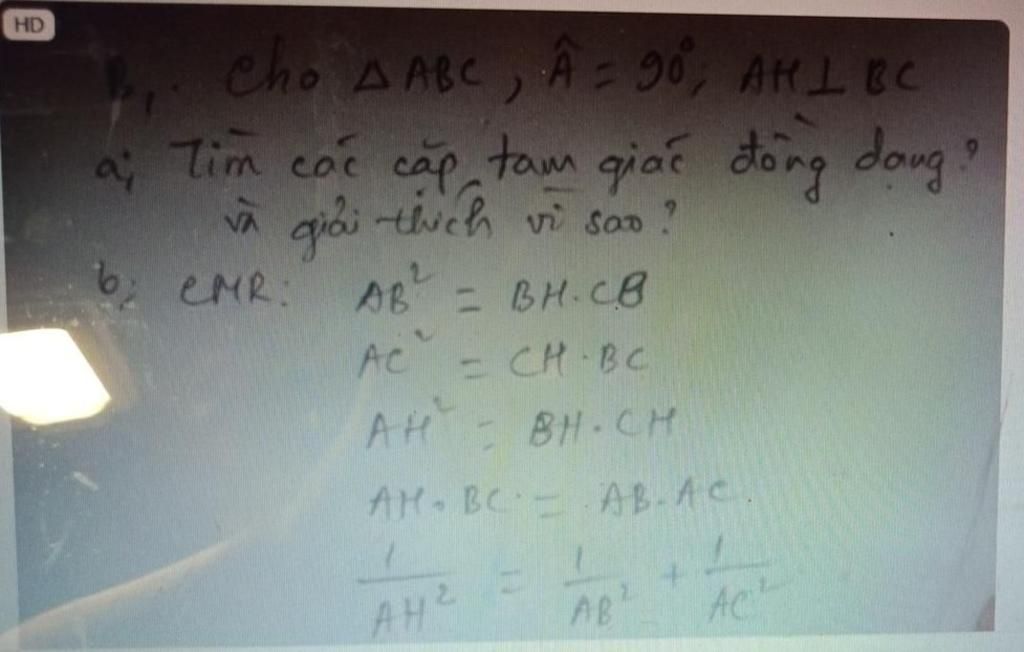 HD
B₁. Cho △ABC, Â = 90°, AH⊥BC
a; Tìm các cặp tam giác đồng dạng?
và giải thích vì sao?
b; CMR: AB² = BH.CB
AC² = CH.BC
AH² = BH.CH
AH.BC = AB.AC.
1/AH² = 1/AB² + 1/AC²